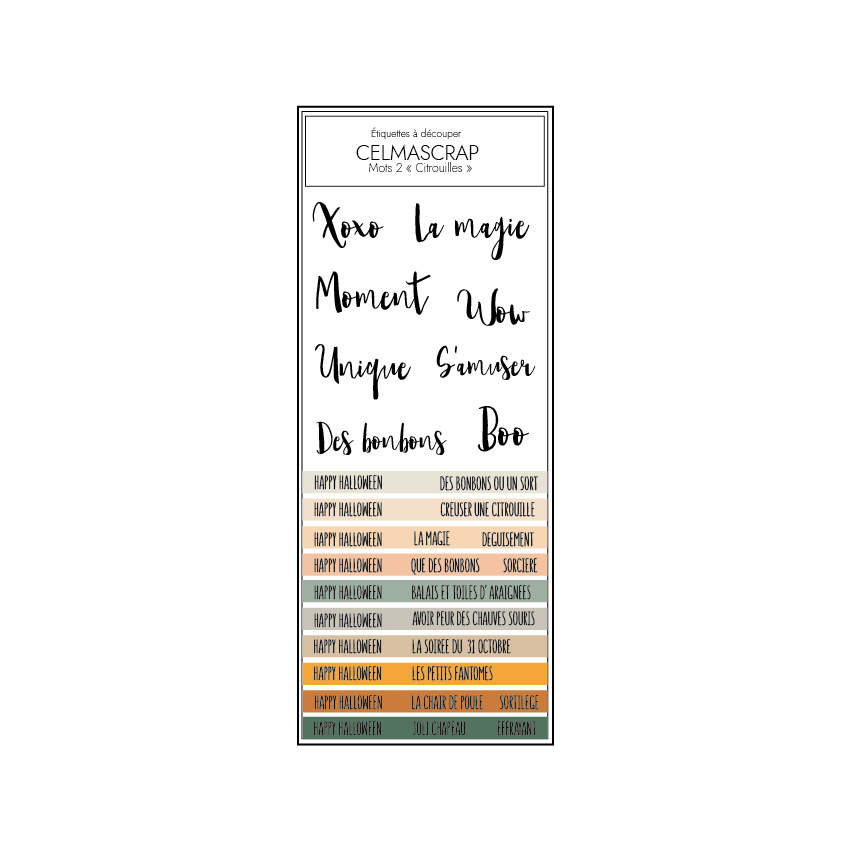 Étiquettes à découper
CELMASCRAP
Mots 2 « Citrouilles »
Xoxo La magie
Moment Wow
Unique S'amuser
Des bonbons Boo
HAPPY HALLOWEEN DES BONBONS OU UN SORT
HAPPY HALLOWEEN CREUSER UNE CITROUILLE
HAPPY HALLOWEEN LA MAGIE DEGUISEMENT
HAPPY HALLOWEEN QUE DES BONBONS SORCIERE
HAPPY HALLOWEEN BALAIS ET TOILES D' ARAIGNEES
HAPPY HALLOWEEN AVOIR PEUR DES CHAUVES SOURIS
HAPPY HALLOWEEN LA SOIREE DU 31 OCTOBRE
HAPPY HALLOWEEN LES PETITS FANTOMES
HAPPY HALLOWEEN LA CHAIR DE POULE SORTILEGE
HAPPY HALLOWEEN JOLI CHAPEAU EFFRAYANT